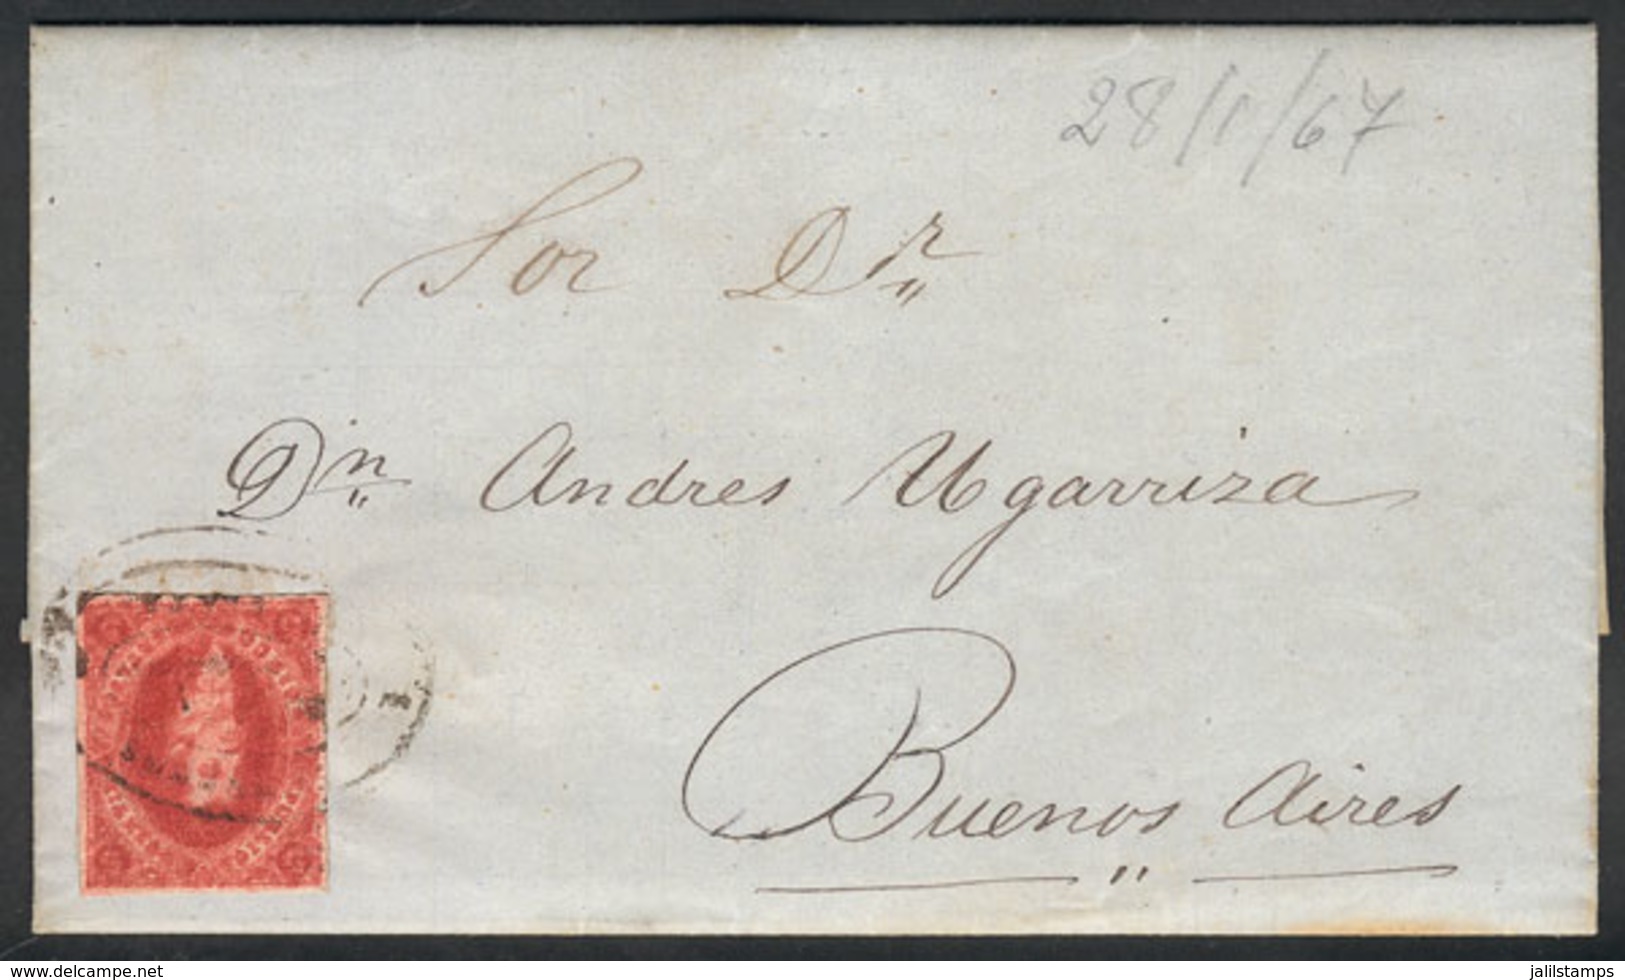 28/1/67
Sor Dr
Dn Andres Ugarriza
Buenos Aires
delcampe.net
jalilstamps